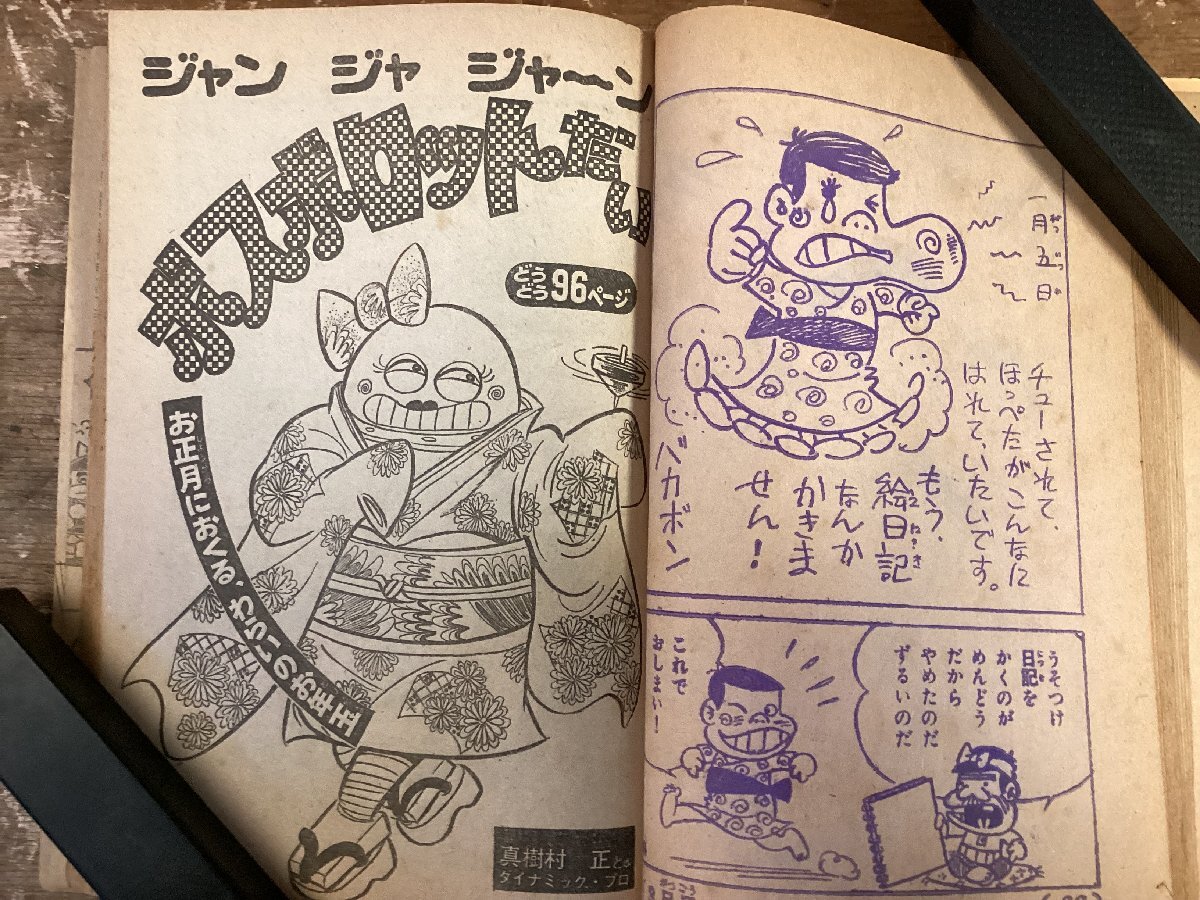 一月五日
チューされて、
ほっぺたがこんなに
はれて、いたいです。
もう、
絵日記
なんか
かきま
せん!
バカボン
うそつけ
日記を
かくのが
めんどう
だから
やめたのだ
ずるいのだ
これで
おしまい!
ジャン ジャ ジャ〜ン
ボスボロットだい
どうどう96ページ
お正月におくる、わびさびの王者
真樹村 正と
ダイナミック・プロ